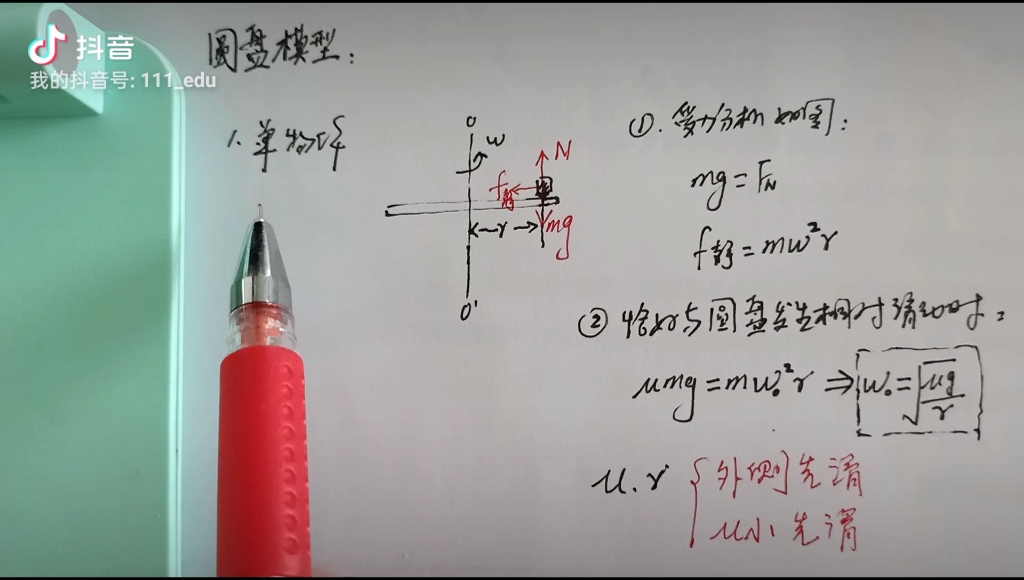 抖音
我的抖音号: 111_edu
圆盘模型:
1. 单物体
O
ω
N
f静
r
mg
O'
①. 受力分析如图:
mg = F_N
f静 = mω²r
② 恰好与圆盘发生相对滑动时:
μmg = mω₀²r ⇒ ω₀ = √(μg/r)
μ. r { 外侧先滑
μ小先滑